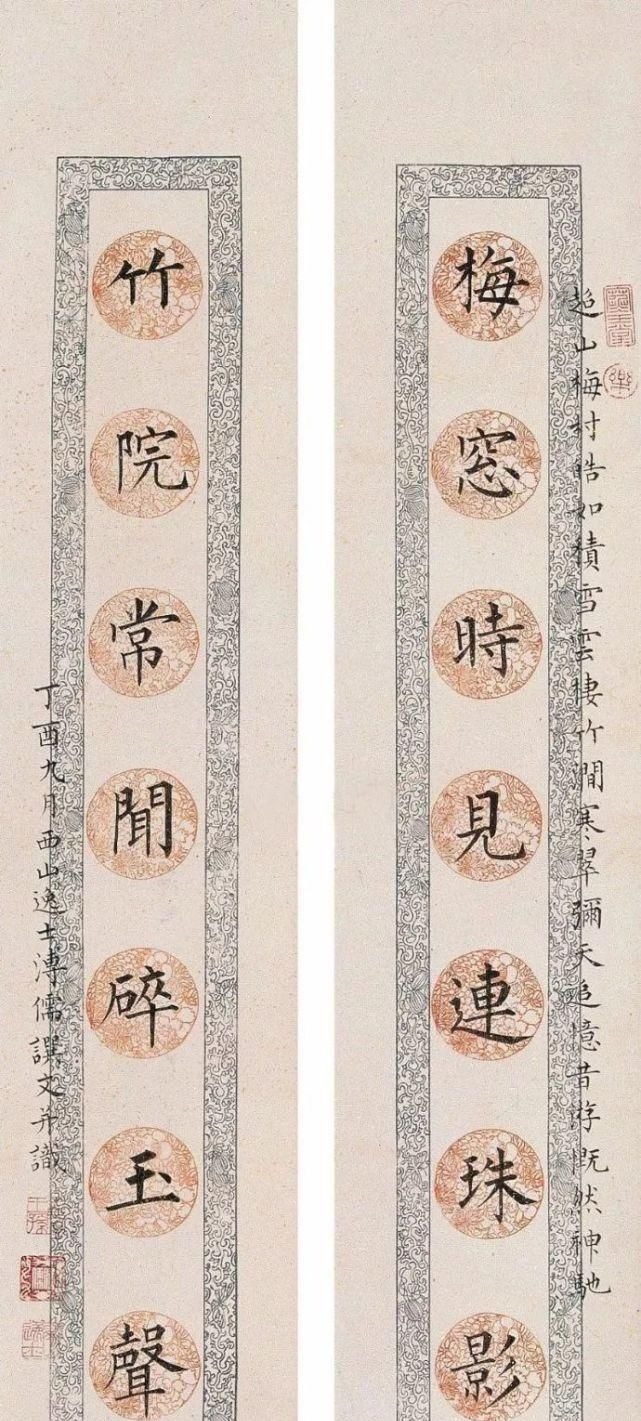 梅窓時見連珠影
超山梅村皓如積雪雲棲竹澗寒翠彌天追憶昔游慨然神馳
竹院常聞碎玉聲
丁酉九月西山逸士溥儒譔文并識